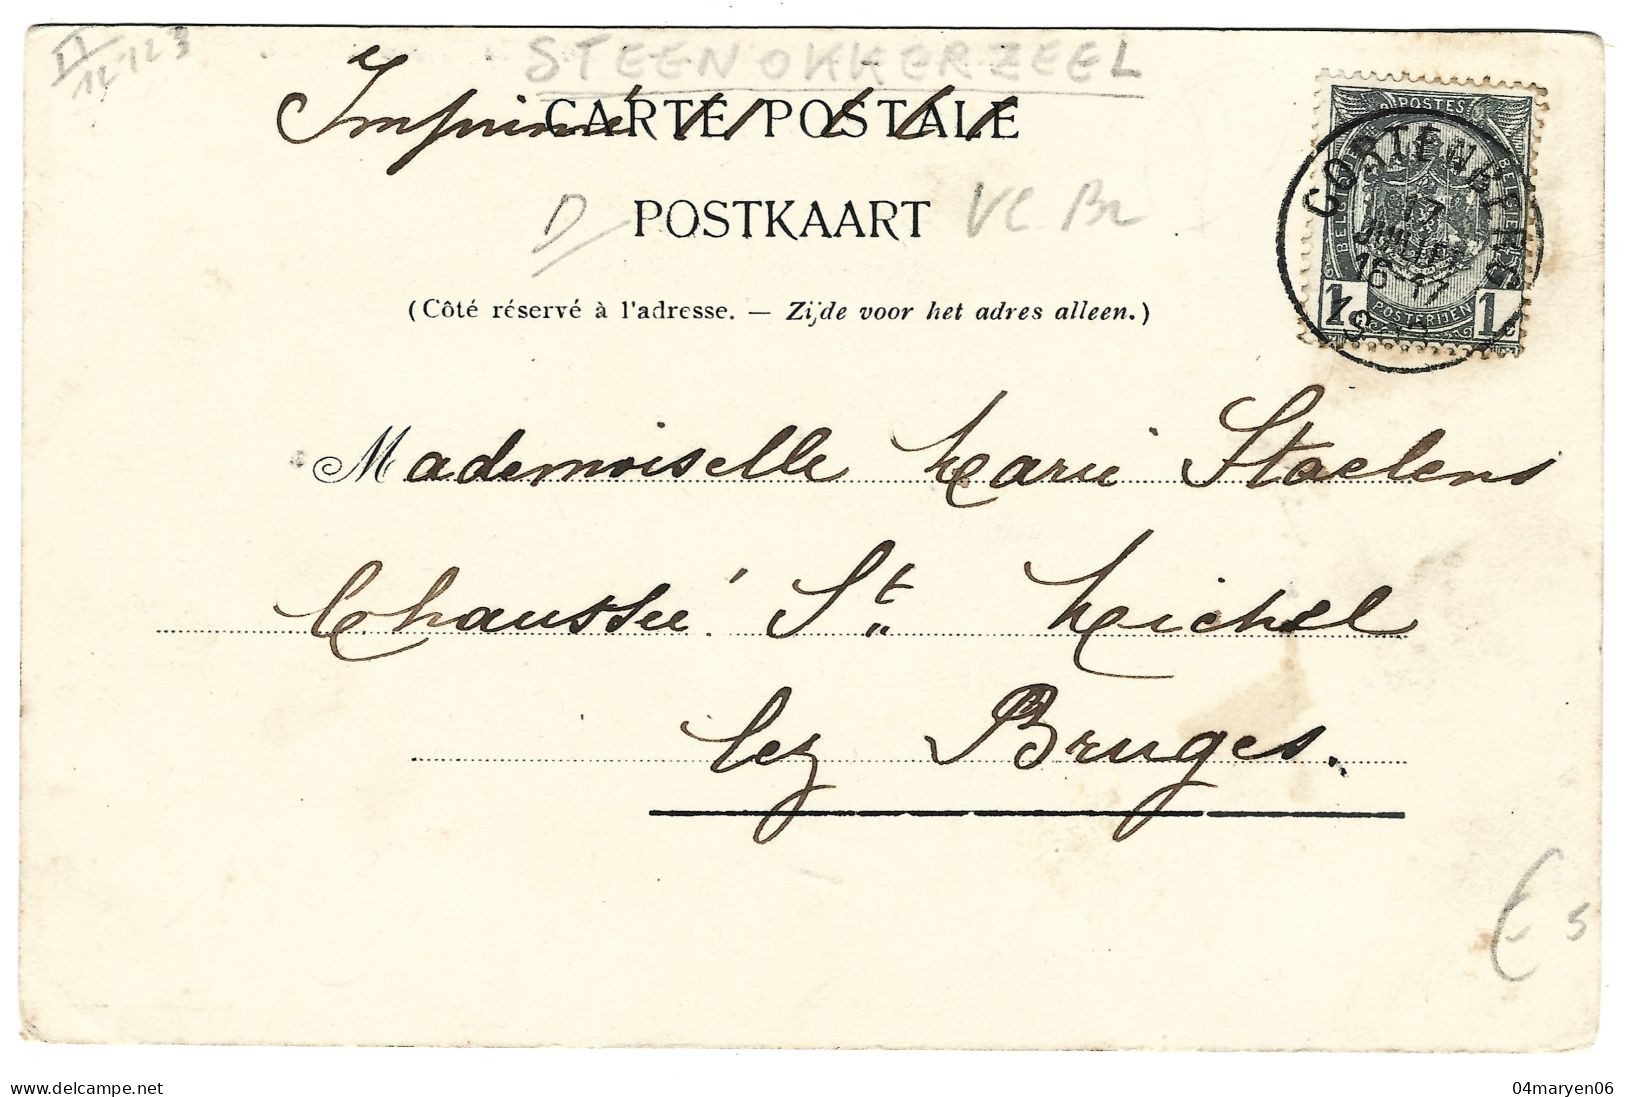 II/14 123
STEENOKKERZEEL
Imprimé
CARTE POSTALE
D POSTKAART VC Br
(Côté réservé à l'adresse. — Zijde voor het adres alleen.)
POSTES
BELGIQUE BELGIE
1 c POSTERIJEN 1 c
CORTENBERG
17
JUILLET
16-17
Mademoiselle Marie Staelens
Chaussée St. Michel
lez Bruges.
€ 5
04maryen06